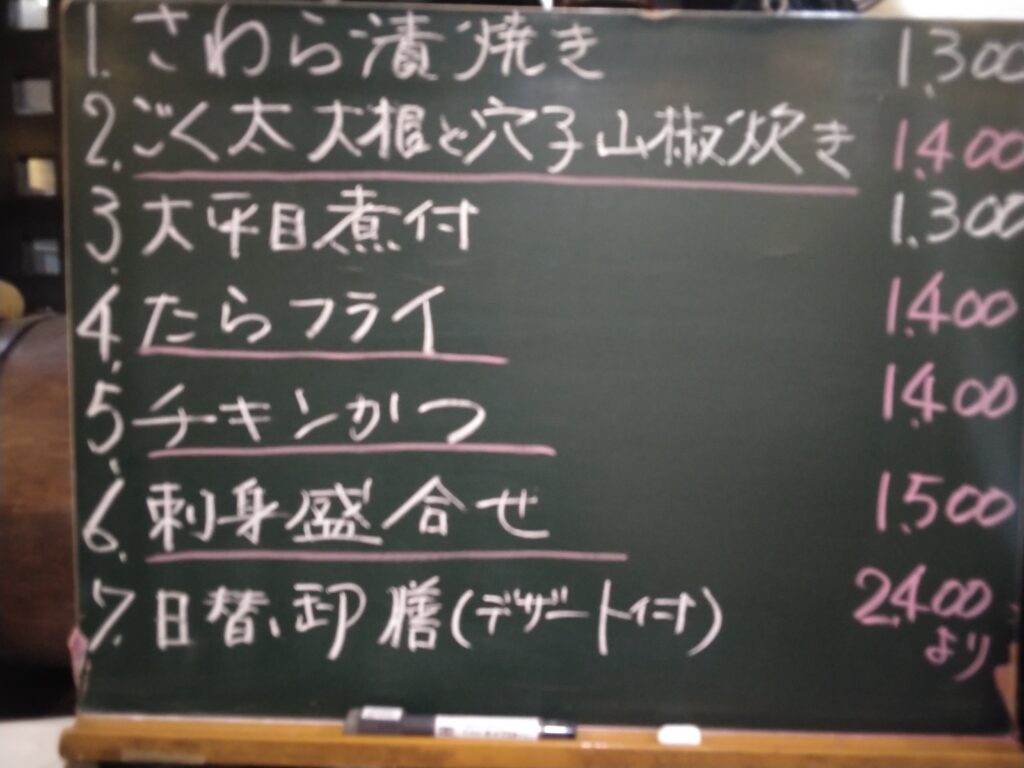 1. さわら漬焼き 1.300
2. ごく太大根と穴子山椒炊き 1.400
3. 大平目煮付 1.300
4. たらフライ 1.400
5. チキンかつ 1.400
6. 刺身盛合せ 1.500
7. 日替り御膳(デザート付) 2.400
より